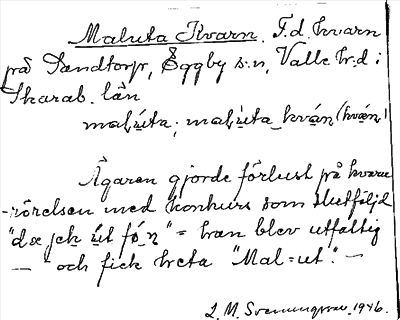 Maluta Kvarn. F.d. kvarn
på Sandtorp, Eggby s:n, Valle h:d i
Skarab. län
malúta; malùta kván (kván)
Ägaren gjorde förlust på kvarn
-rörelsen med konkurs som slutföljd
"dæ jek út fó n" = han blev utfattig
— och fick heta "Mal=ut". —
L. M. Svenungsson 1946.